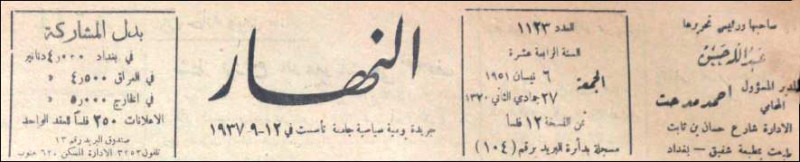 صاحبها ورئيس تحريرها
عبدالله حسن
المدير المسؤول احمد مدحت
المحامي
الادارة شارع حسان بن ثابت
طبعت بمطبعة شفيق - بغداد
العدد ١١٢٣
السنة الرابعة عشرة
الجمعة
٦ نيسان ١٩٥١
٢٧ جمادي الثاني ١٣٧٠
ثمن النسخة ١٢ فلسا
مسجلة بدائرة البريد برقم (١٠٤)
النهار
جريدة يومية سياسية جامعة تأسست في ١٢-٩-١٩٣٧
بدل المشاركة
في بغداد ٤٫٠٠٠ دنانير
في العراق ٤٫٥٠٠ »
في الخارج ٥٫٠٠٠ »
الاعلانات ٢٥٠ فلساً للعقد الواحد
صندوق البريد رقم ١٣
تلفون ٣٢٥٣ الادارة المسكن ٦٢٠ جنوب